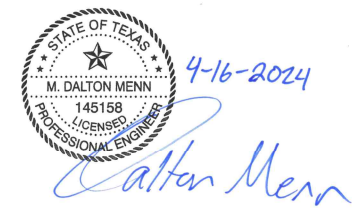 STATE OF TEXAS
M. DALTON MENN
145158
LICENSED
PROFESSIONAL ENGINEER
4-16-2024
Dalton Menn